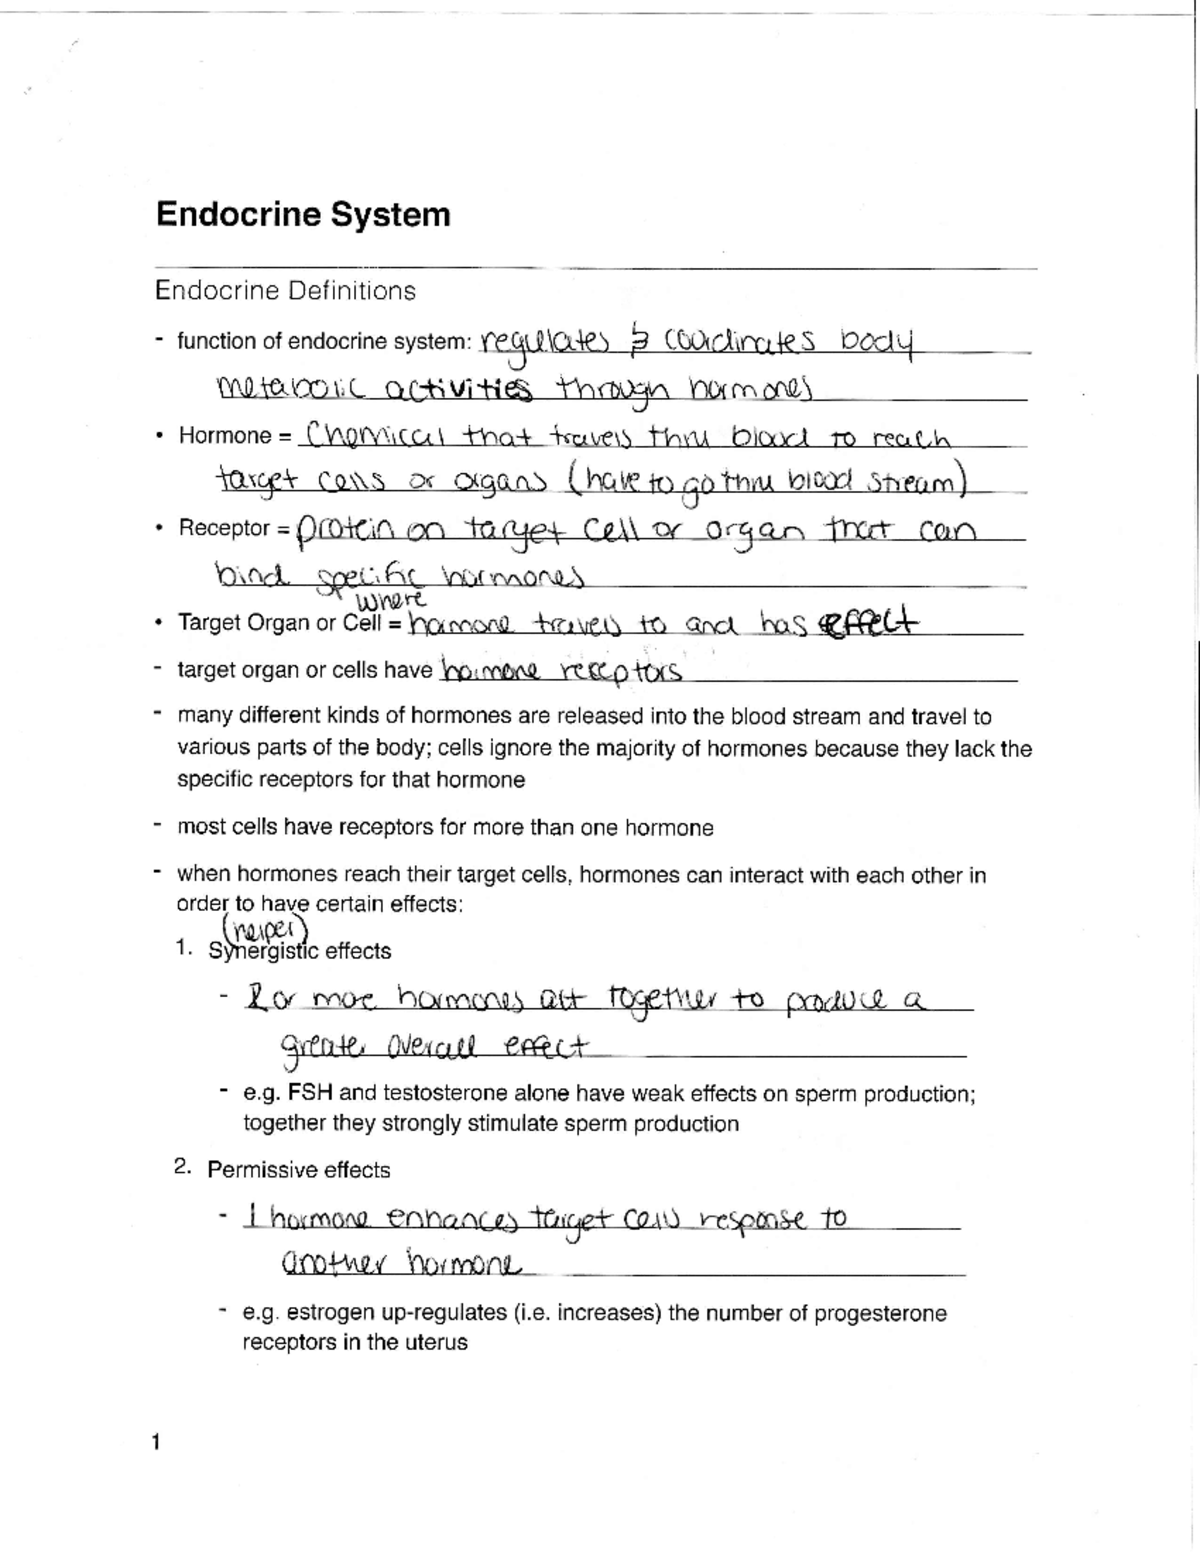 Endocrine System
Endocrine Definitions
- function of endocrine system: regulates & coordinates body
metabolic activities through hormones
• Hormone = Chemical that travels thru blood to reach
target cells or organs (have to go thru blood stream)
• Receptor = protein on target cell or organ that can
bind specific hormones
where
• Target Organ or Cell = hormone travels to and has effect
- target organ or cells have hormone receptors
- many different kinds of hormones are released into the blood stream and travel to
various parts of the body; cells ignore the majority of hormones because they lack the
specific receptors for that hormone
- most cells have receptors for more than one hormone
- when hormones reach their target cells, hormones can interact with each other in
order to have certain effects:
(helper)
1. Synergistic effects
- 2 or more hormones act together to produce a
greater overall effect
- e.g. FSH and testosterone alone have weak effects on sperm production;
together they strongly stimulate sperm production
2. Permissive effects
- 1 hormone enhances target cells response to
another hormone
- e.g. estrogen up-regulates (i.e. increases) the number of progesterone
receptors in the uterus
1